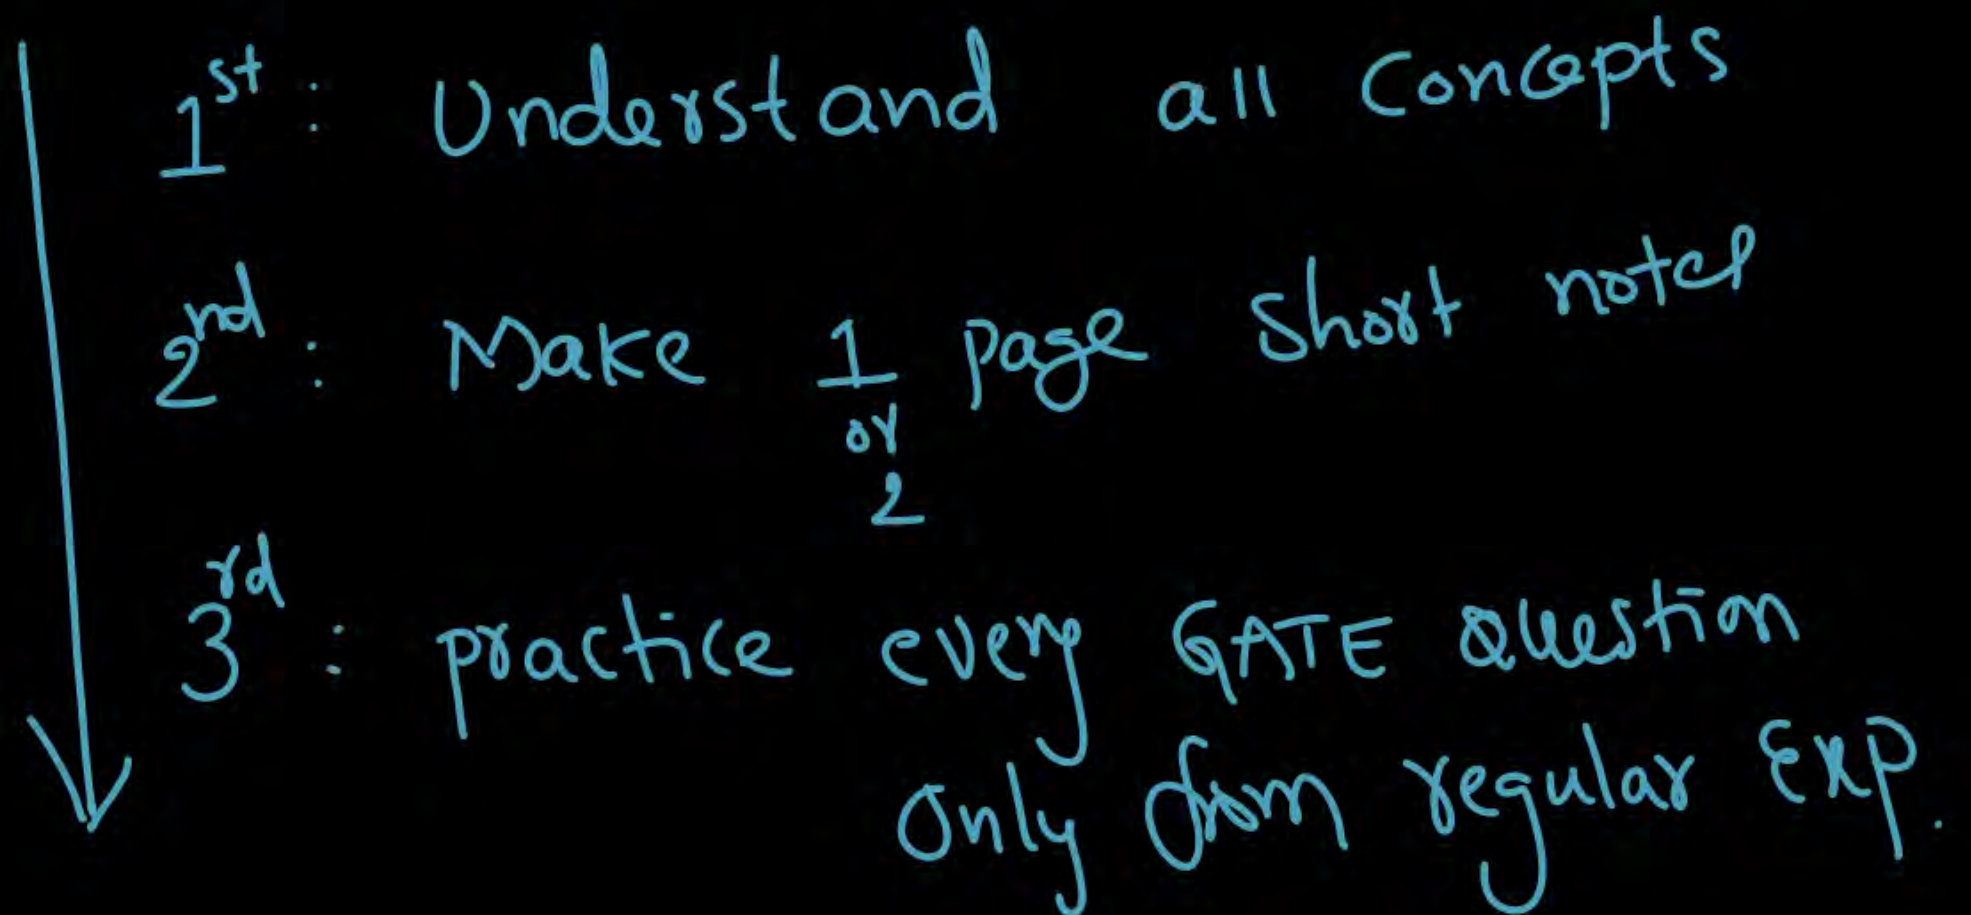 1st : Understand all Concepts
2nd : Make 1 page Short notes
or
2
3rd : practice every GATE Question
Only from regular Exp.